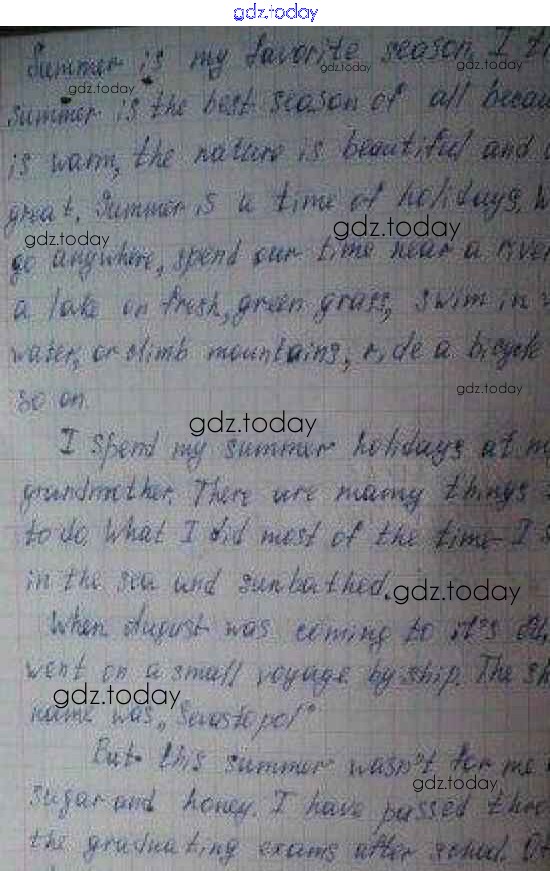 gdz.today
Summer is my favorite season. I
summer is the best season of all
is warm, the nature is beautiful and
great. Summer is a time of holidays.
go anywhere, spend our time near a river
a lake on fresh, green grass, swim in
water, or climb mountains, ride a bicycle
so on.
I spend my summer holidays at
grandmother. There are many things
to do. What I did most of the time - I
in the sea and sunbathed.
When august was coming to it's
went on a small voyage by ship. The
name was „Sevastopol"
But this summer wasn't for me
sugar and honey. I have passed
the graduating exams after school.
gdz.today
gdz.today
gdz.today
gdz.today
gdz.today
gdz.today
gdz.today
gdz.today
gdz.today
gdz.today
gdz.today